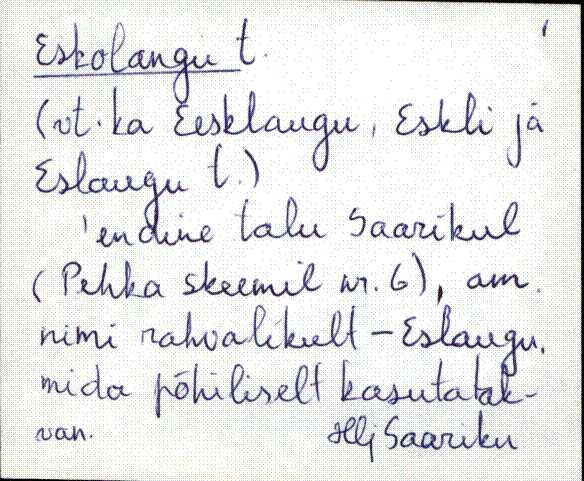 Eskolangu t.
(vt. ka Eesklaugu, Eskli ja
Eslaugu t.)
'endine talu Saarikul
(Pehka skeemil nr. 6), am.
nimi rahvalikult - Eslaugu,
mida põhiliselt kasutatak-
van.
Hlj Saariku